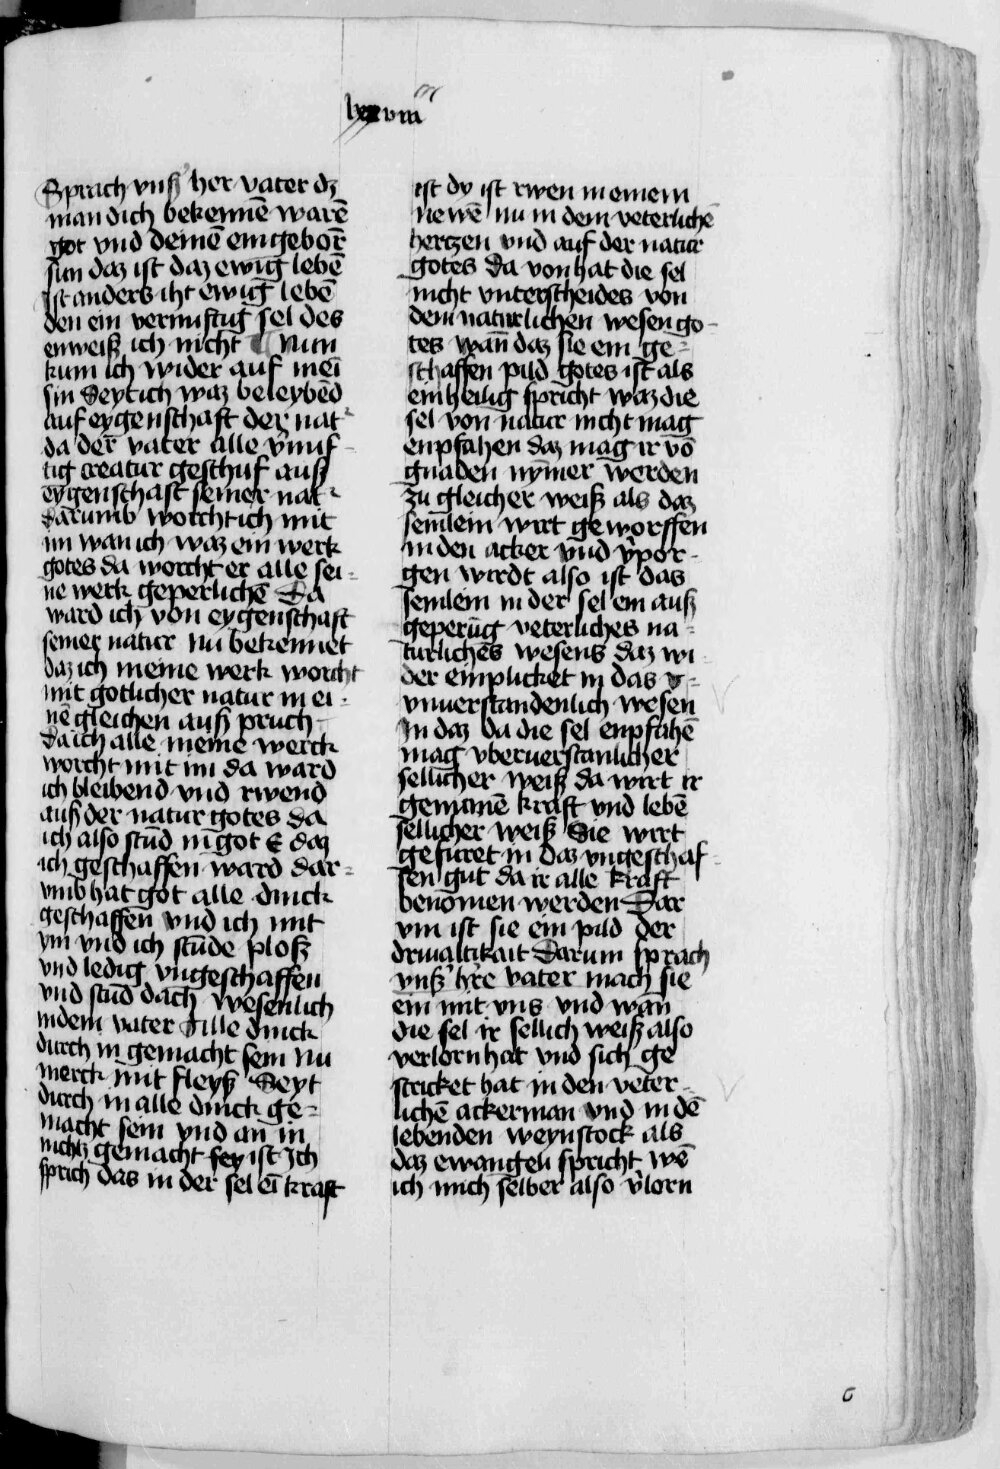 lxxviii
Sprach vnß her vater dz
man dich bekennē warē
got vnd deinē eingeborͤ
sun daz ist daz ewig lebē
Ist anders iht ewig lebē
den ein vernuftig sel des
enweiß ich nicht Nun
kum ich wider auf meī
sin Seyt ich waz beleybēd
auf eygenschaft der nat
da der vater alle v̄nuf-
tig creatur geschuf auß
eygenschaft seiner nat
darumb worcht ich mit
im wan ich waz ein werk
gotes da worcht er alle sei-
ne werk geperlichē Da
ward ich von eygenschaft
seiner natur nū bekennet
daz ich meine werk worcht
mit gotlicher natur in ei-
nē gleichen auß pruch
da ich alle meine werck
worcht mit im da ward
ich bleibend vnd rwend
auß der natur gotes da
ich also stūd in got E daz
ich geschaffen ward dar-
vmb hat got alle dinck
geschaffen vnd ich mit
ym vnd ich stūde ploß
vnd ledig vngeschaffen
vnd stūd dach wesenlich
in dem vater Alle dinck
durch in gemacht sein Nu
merck mit fleyß Seyt
durch in alle dinck ge-
macht sein vnd an in
nichtz gemacht sey ist Ich
sprich das in der sel eī kraft
ist dy ist rwen in einem
newē nu in dem veterlichē
hertzen vnd auf der natur
gotes Da von hat die sel
nicht vnterscheides von
dem naturlichen wesen go-
tes wān daz sie ein ge-
schaffen pild gotes ist als
ein heilig spricht waz die
sel von natur nicht mag
enpfahen daz mag ir vō
gnaden nymer werden
zu gleicher weiß als daz
semlein wirt geworffen
in den acker vnd v̄por-
gen wirdt also ist das
semlein in der sel ein auß
geperūg veterliches na-
turliches wesens daz wi-
der einplicket in das
vnuerstandenlich wesen
In daz da die sel enpfahē
mag vberuerstanlicher
sellicher weiß da wirt ir
genumē kraft vnd lebē
sellicher weiß Sie wirt
gefuret in daz vngeschaf-
fen gut da ir alle kraft
benōmen werden Dar
vm ist sie ein pild der
driualtikait Darum sprach
vnß h're vater mach sie
ein mit vns vnd wān
die sel ir sellich weiß also
verlorn hat vnd sich ge
stricket hat in den veter-
lichē ackerman vnd in dē
lebenden weynstock als
daz ewangeli spricht wē
ich mich selber also v̄lorn
6